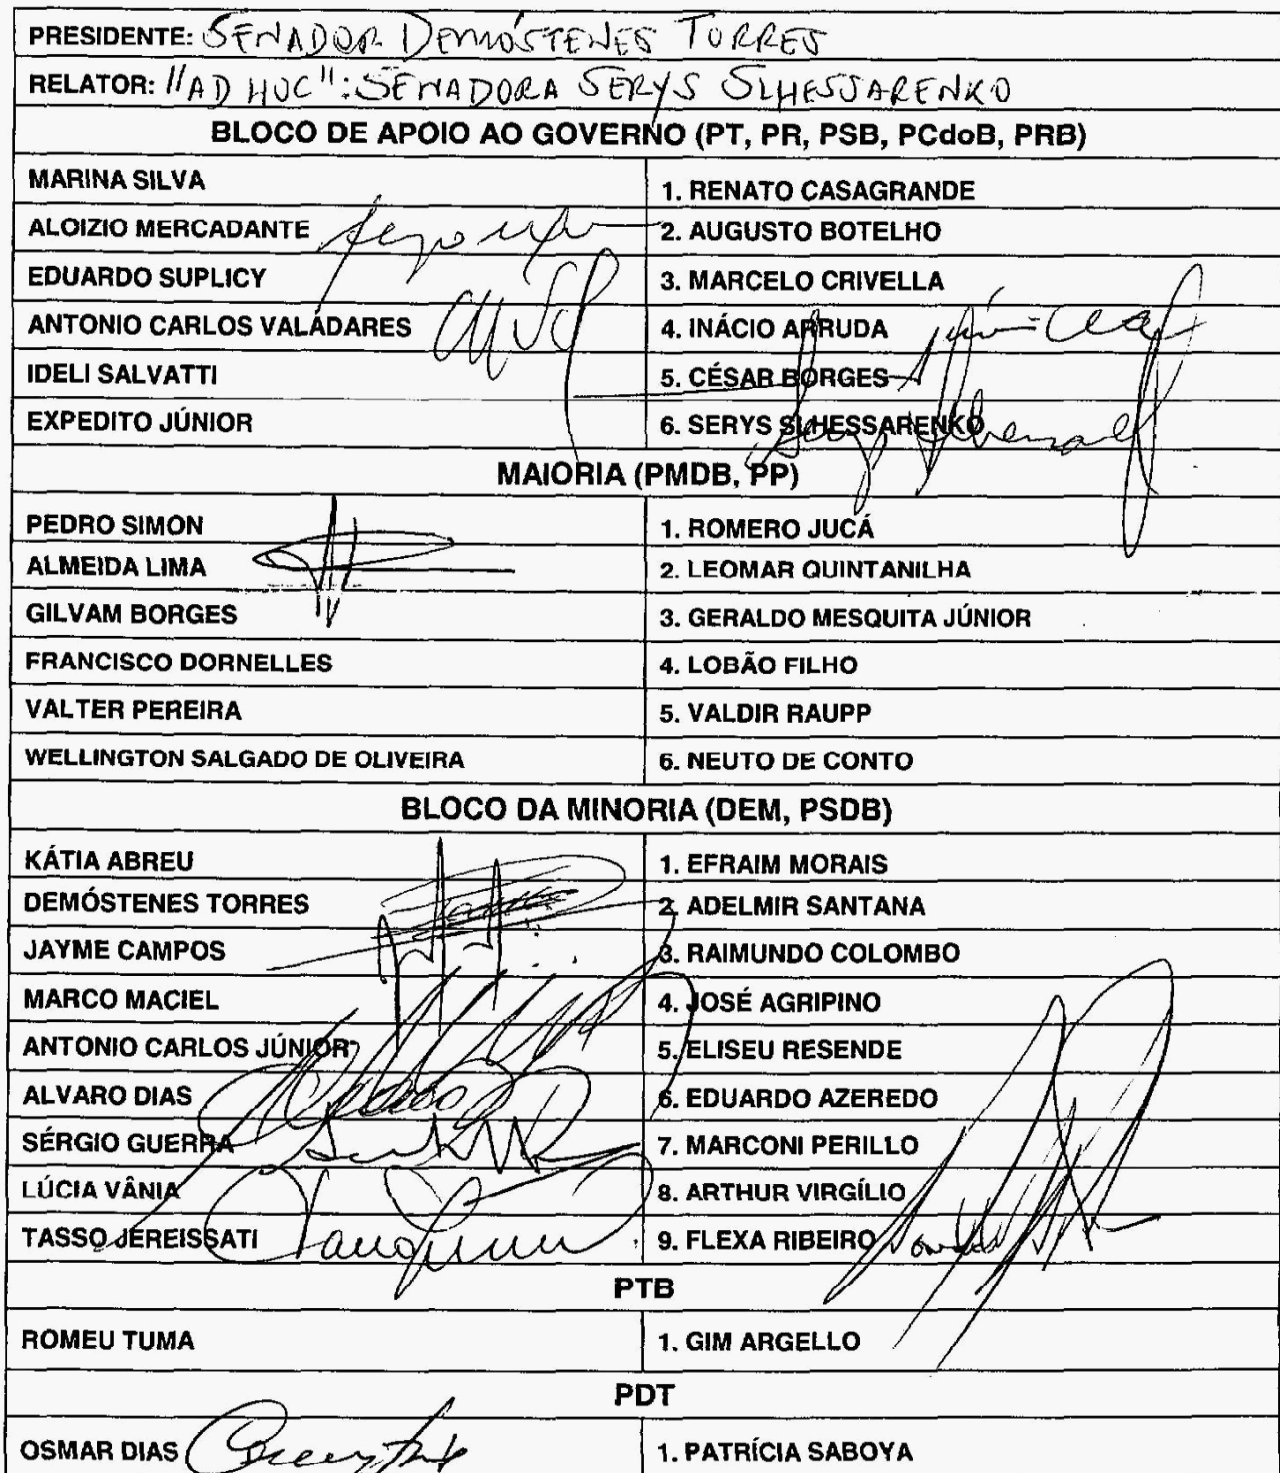 PRESIDENTE: SENADOR DEMÓSTENES TORRES
RELATOR: "AD HOC": SENADORA SERYS SLHESSARENKO
BLOCO DE APOIO AO GOVERNO (PT, PR, PSB, PCdoB, PRB)
MARINA SILVA 1. RENATO CASAGRANDE
ALOIZIO MERCADANTE 2. AUGUSTO BOTELHO
EDUARDO SUPLICY 3. MARCELO CRIVELLA
ANTONIO CARLOS VALADARES 4. INÁCIO ARRUDA
IDELI SALVATTI 5. CÉSAR BORGES
EXPEDITO JÚNIOR 6. SERYS SLHESSARENKO
MAIORIA (PMDB, PP)
PEDRO SIMON 1. ROMERO JUCÁ
ALMEIDA LIMA 2. LEOMAR QUINTANILHA
GILVAM BORGES 3. GERALDO MESQUITA JÚNIOR
FRANCISCO DORNELLES 4. LOBÃO FILHO
VALTER PEREIRA 5. VALDIR RAUPP
WELLINGTON SALGADO DE OLIVEIRA 6. NEUTO DE CONTO
BLOCO DA MINORIA (DEM, PSDB)
KÁTIA ABREU 1. EFRAIM MORAIS
DEMÓSTENES TORRES 2. ADELMIR SANTANA
JAYME CAMPOS 3. RAIMUNDO COLOMBO
MARCO MACIEL 4. JOSÉ AGRIPINO
ANTONIO CARLOS JÚNIOR 5. ELISEU RESENDE
ALVARO DIAS 6. EDUARDO AZEREDO
SÉRGIO GUERRA 7. MARCONI PERILLO
LÚCIA VÂNIA 8. ARTHUR VIRGÍLIO
TASSO JEREISSATI 9. FLEXA RIBEIRO
PTB
ROMEU TUMA 1. GIM ARGELLO
PDT
OSMAR DIAS 1. PATRÍCIA SABOYA